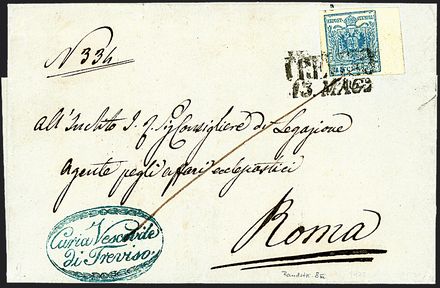 N 334
TREVISO
13. MAG.
all'Inclito I. R. Sig. Consigliere di Legazione
Agente pegli affari ecclesiastici
Roma
Curia Vescovile
di Treviso.